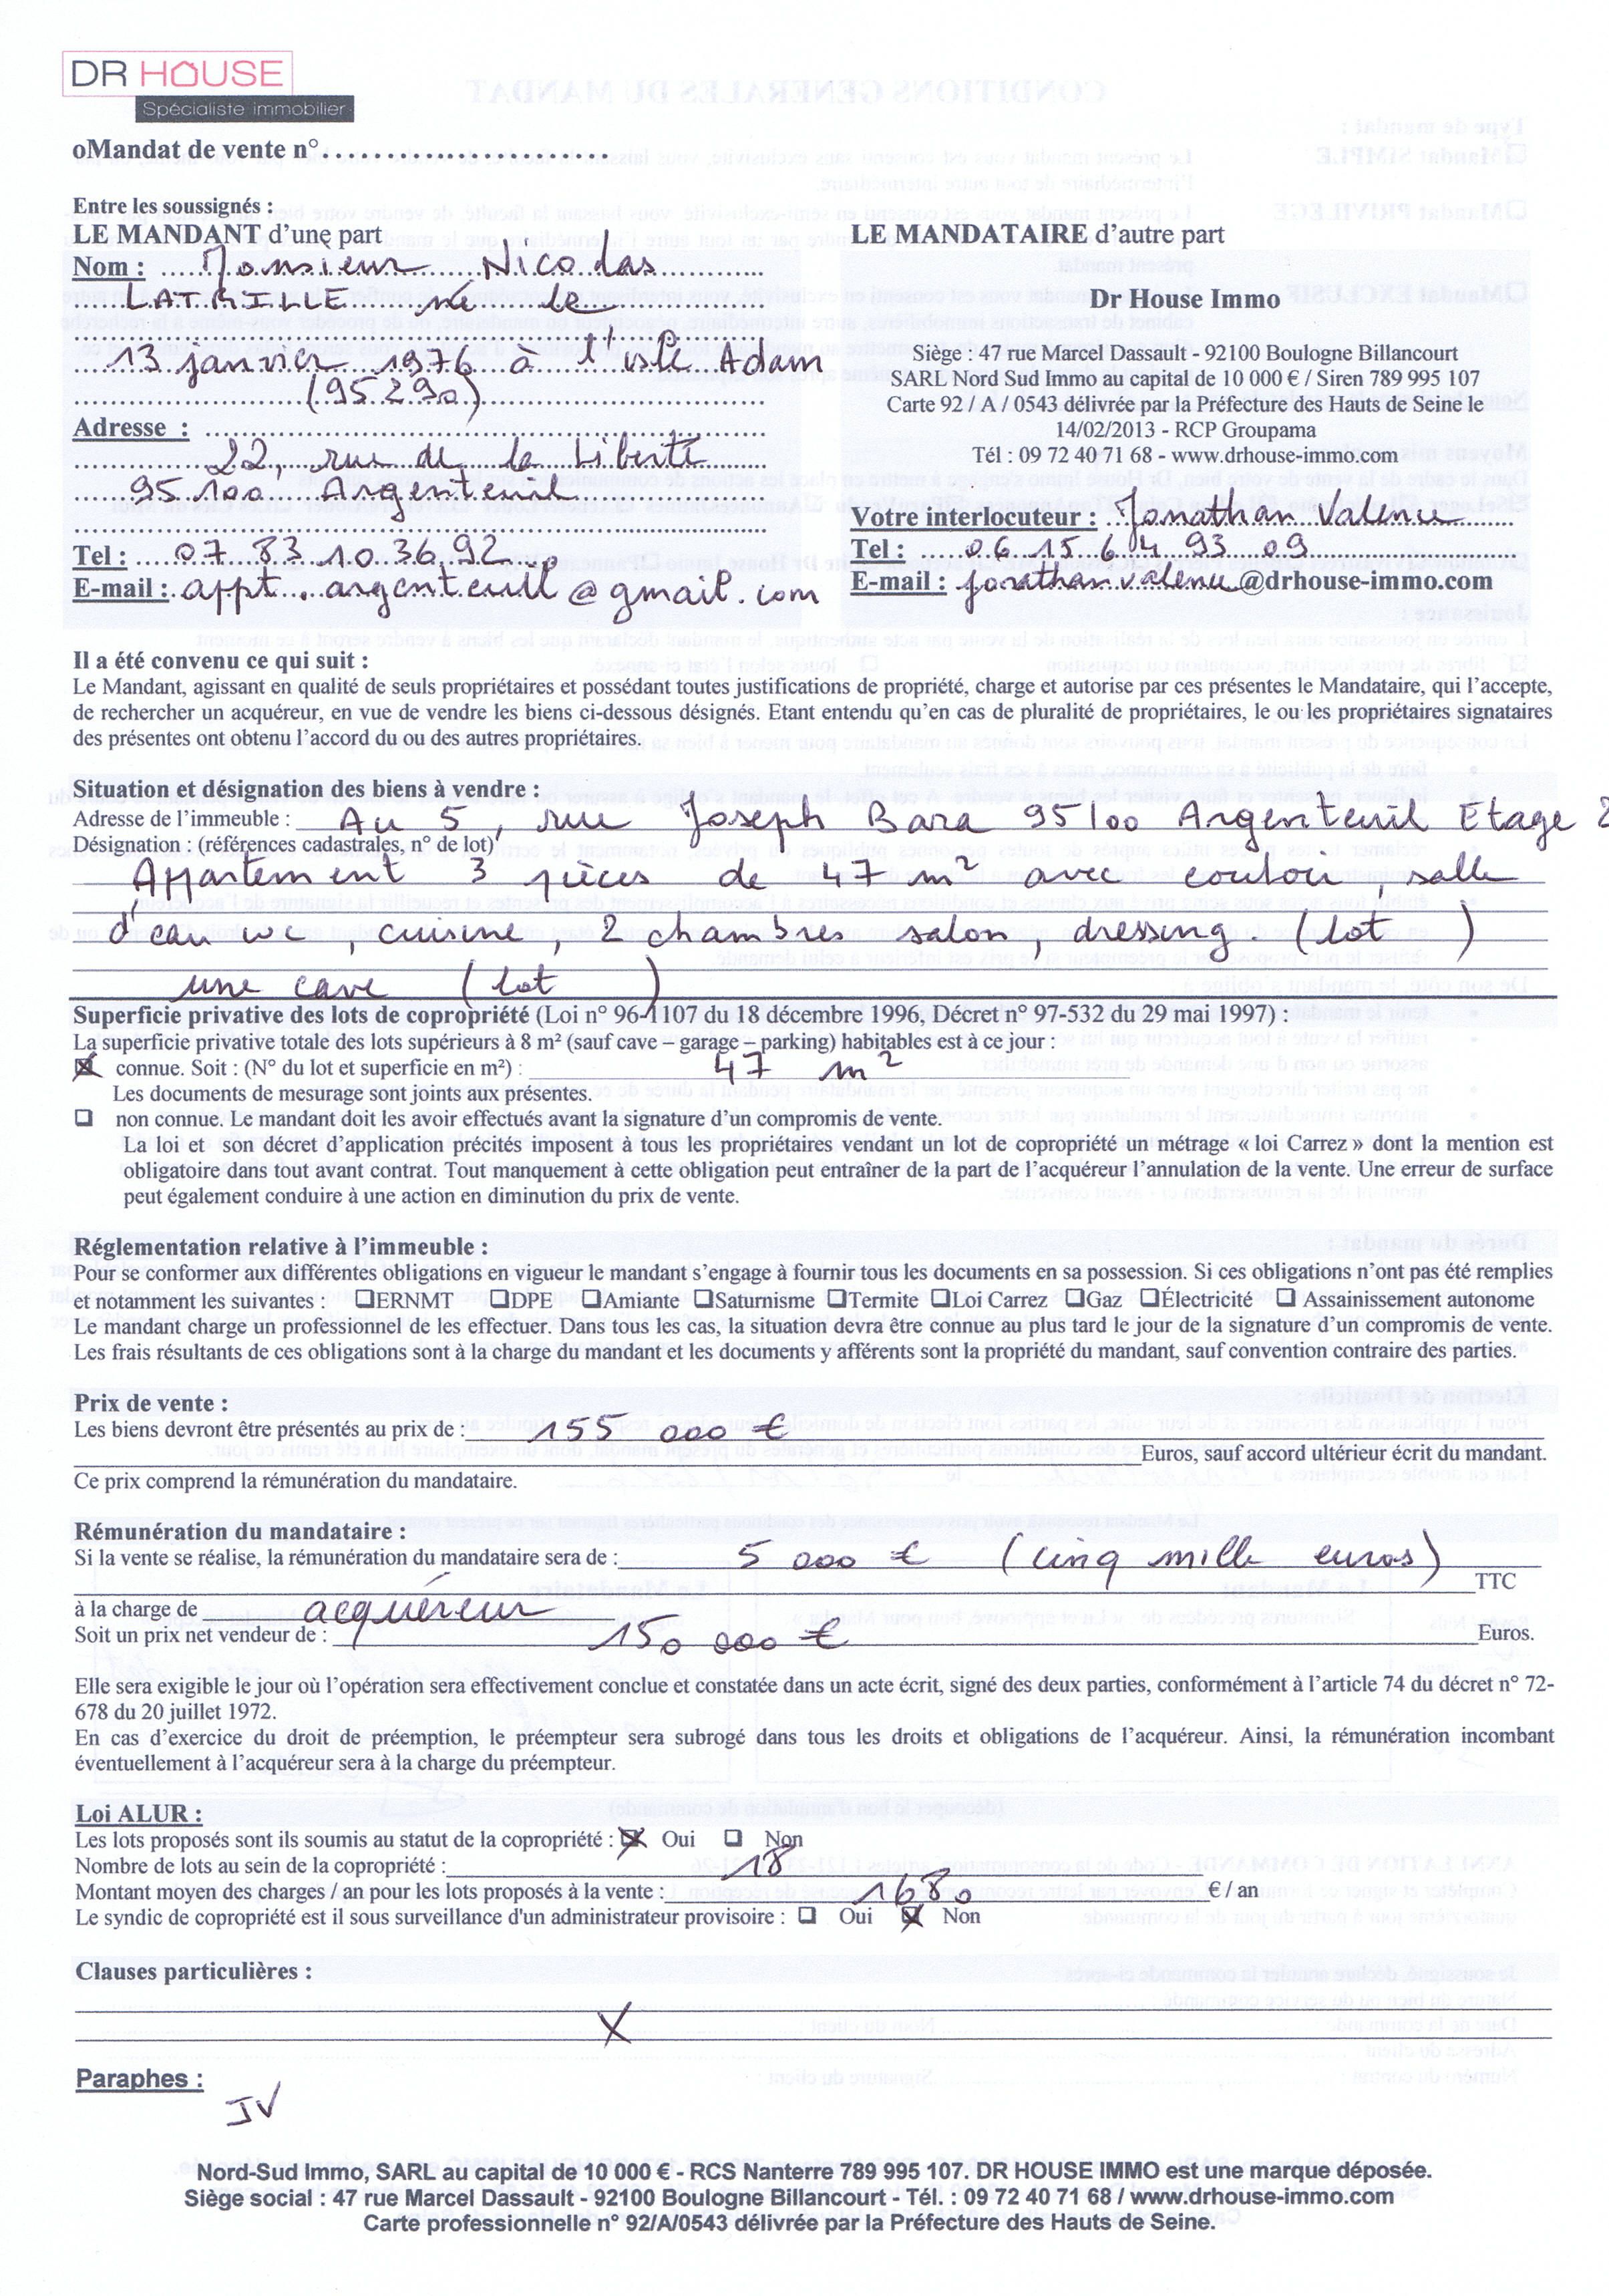 DR HOUSE
Spécialiste immobilier
oMandat de vente n°
Entre les soussignés :
LE MANDANT d'une part
Nom : Monsieur Nicolas
LATRILLE né le
13 janvier 1976 à l'isle Adam
(95290)
Adresse :
22, rue de la Liberté
95100 Argenteuil
Tel : 07 83 10 36 92
E-mail : appt.argenteuil@gmail.com
LE MANDATAIRE d'autre part
Dr House Immo
Siège : 47 rue Marcel Dassault - 92100 Boulogne Billancourt
SARL Nord Sud Immo au capital de 10 000 € / Siren 789 995 107
Carte 92 / A / 0543 délivrée par la Préfecture des Hauts de Seine le
14/02/2013 - RCP Groupama
Tél : 09 72 40 71 68 - www.drhouse-immo.com
Votre interlocuteur : Jonathan Valenu
Tel : 06 15 64 93 09
E-mail : jonathan.valenu@drhouse-immo.com
Il a été convenu ce qui suit :
Le Mandant, agissant en qualité de seuls propriétaires et possédant toutes justifications de propriété, charge et autorise par ces présentes le Mandataire, qui l'accepte,
de rechercher un acquéreur, en vue de vendre les biens ci-dessous désignés. Etant entendu qu'en cas de pluralité de propriétaires, le ou les propriétaires signataires
des présentes ont obtenu l'accord du ou des autres propriétaires.
Situation et désignation des biens à vendre :
Adresse de l'immeuble : Au 5, rue Joseph Bara 95100 Argenteuil Etage 2
Désignation : (références cadastrales, n° de lot)
Appartement 3 pièces de 47 m² avec couloir, salle
d'eau wc, cuisine, 2 chambres salon, dressing. (lot )
une cave (lot )
Superficie privative des lots de copropriété (Loi n° 96-1107 du 18 décembre 1996, Décret n° 97-532 du 29 mai 1997) :
La superficie privative totale des lots supérieurs à 8 m² (sauf cave – garage – parking) habitables est à ce jour :
☒ connue. Soit : (N° du lot et superficie en m²) : 47 m²
Les documents de mesurage sont joints aux présentes.
☐ non connue. Le mandant doit les avoir effectués avant la signature d'un compromis de vente.
La loi et son décret d'application précités imposent à tous les propriétaires vendant un lot de copropriété un métrage « loi Carrez » dont la mention est
obligatoire dans tout avant contrat. Tout manquement à cette obligation peut entraîner de la part de l'acquéreur l'annulation de la vente. Une erreur de surface
peut également conduire à une action en diminution du prix de vente.
Réglementation relative à l'immeuble :
Pour se conformer aux différentes obligations en vigueur le mandant s'engage à fournir tous les documents en sa possession. Si ces obligations n'ont pas été remplies
et notamment les suivantes : ☐ERNMT ☐DPE ☐Amiante ☐Saturnisme ☐Termite ☐Loi Carrez ☐Gaz ☐Électricité ☐ Assainissement autonome
Le mandant charge un professionnel de les effectuer. Dans tous les cas, la situation devra être conforme au plus tard le jour de la signature d'un compromis de vente.
Les frais résultants de ces obligations sont à la charge du mandant et les documents y afférents sont la propriété du mandant, sauf convention contraire des parties.
Prix de vente :
Les biens devront être présentés au prix de : 155 000 €
Euros, sauf accord ultérieur écrit du mandant.
Ce prix comprend la rémunération du mandataire.
Rémunération du mandataire :
Si la vente se réalise, la rémunération du mandataire sera de : 5 000 € (cinq mille euros)
TTC
à la charge de acquéreur
Soit un prix net vendeur de : 150 000 € Euros.
Elle sera exigible le jour où l'opération sera effectivement conclue et constatée dans un acte écrit, signé des deux parties, conformément à l'article 74 du décret n° 72-
678 du 20 juillet 1972.
En cas d'exercice du droit de préemption, le préempteur sera subrogé dans tous les droits et obligations de l'acquéreur. Ainsi, la rémunération incombant
éventuellement à l'acquéreur sera à la charge du préempteur.
Loi ALUR :
Les lots proposés sont ils soumis au statut de la copropriété : ☒ Oui ☐ Non
Nombre de lots au sein de la copropriété : 18
Montant moyen des charges / an pour les lots proposés à la vente : 1680 € / an
Le syndic de copropriété est il sous surveillance d'un administrateur provisoire : ☐ Oui ☒ Non
Clauses particulières :
X
Paraphes :
JV
Nord-Sud Immo, SARL au capital de 10 000 € - RCS Nanterre 789 995 107. DR HOUSE IMMO est une marque déposée.
Siège social : 47 rue Marcel Dassault - 92100 Boulogne Billancourt - Tél. : 09 72 40 71 68 / www.drhouse-immo.com
Carte professionnelle n° 92/A/0543 délivrée par la Préfecture des Hauts de Seine.